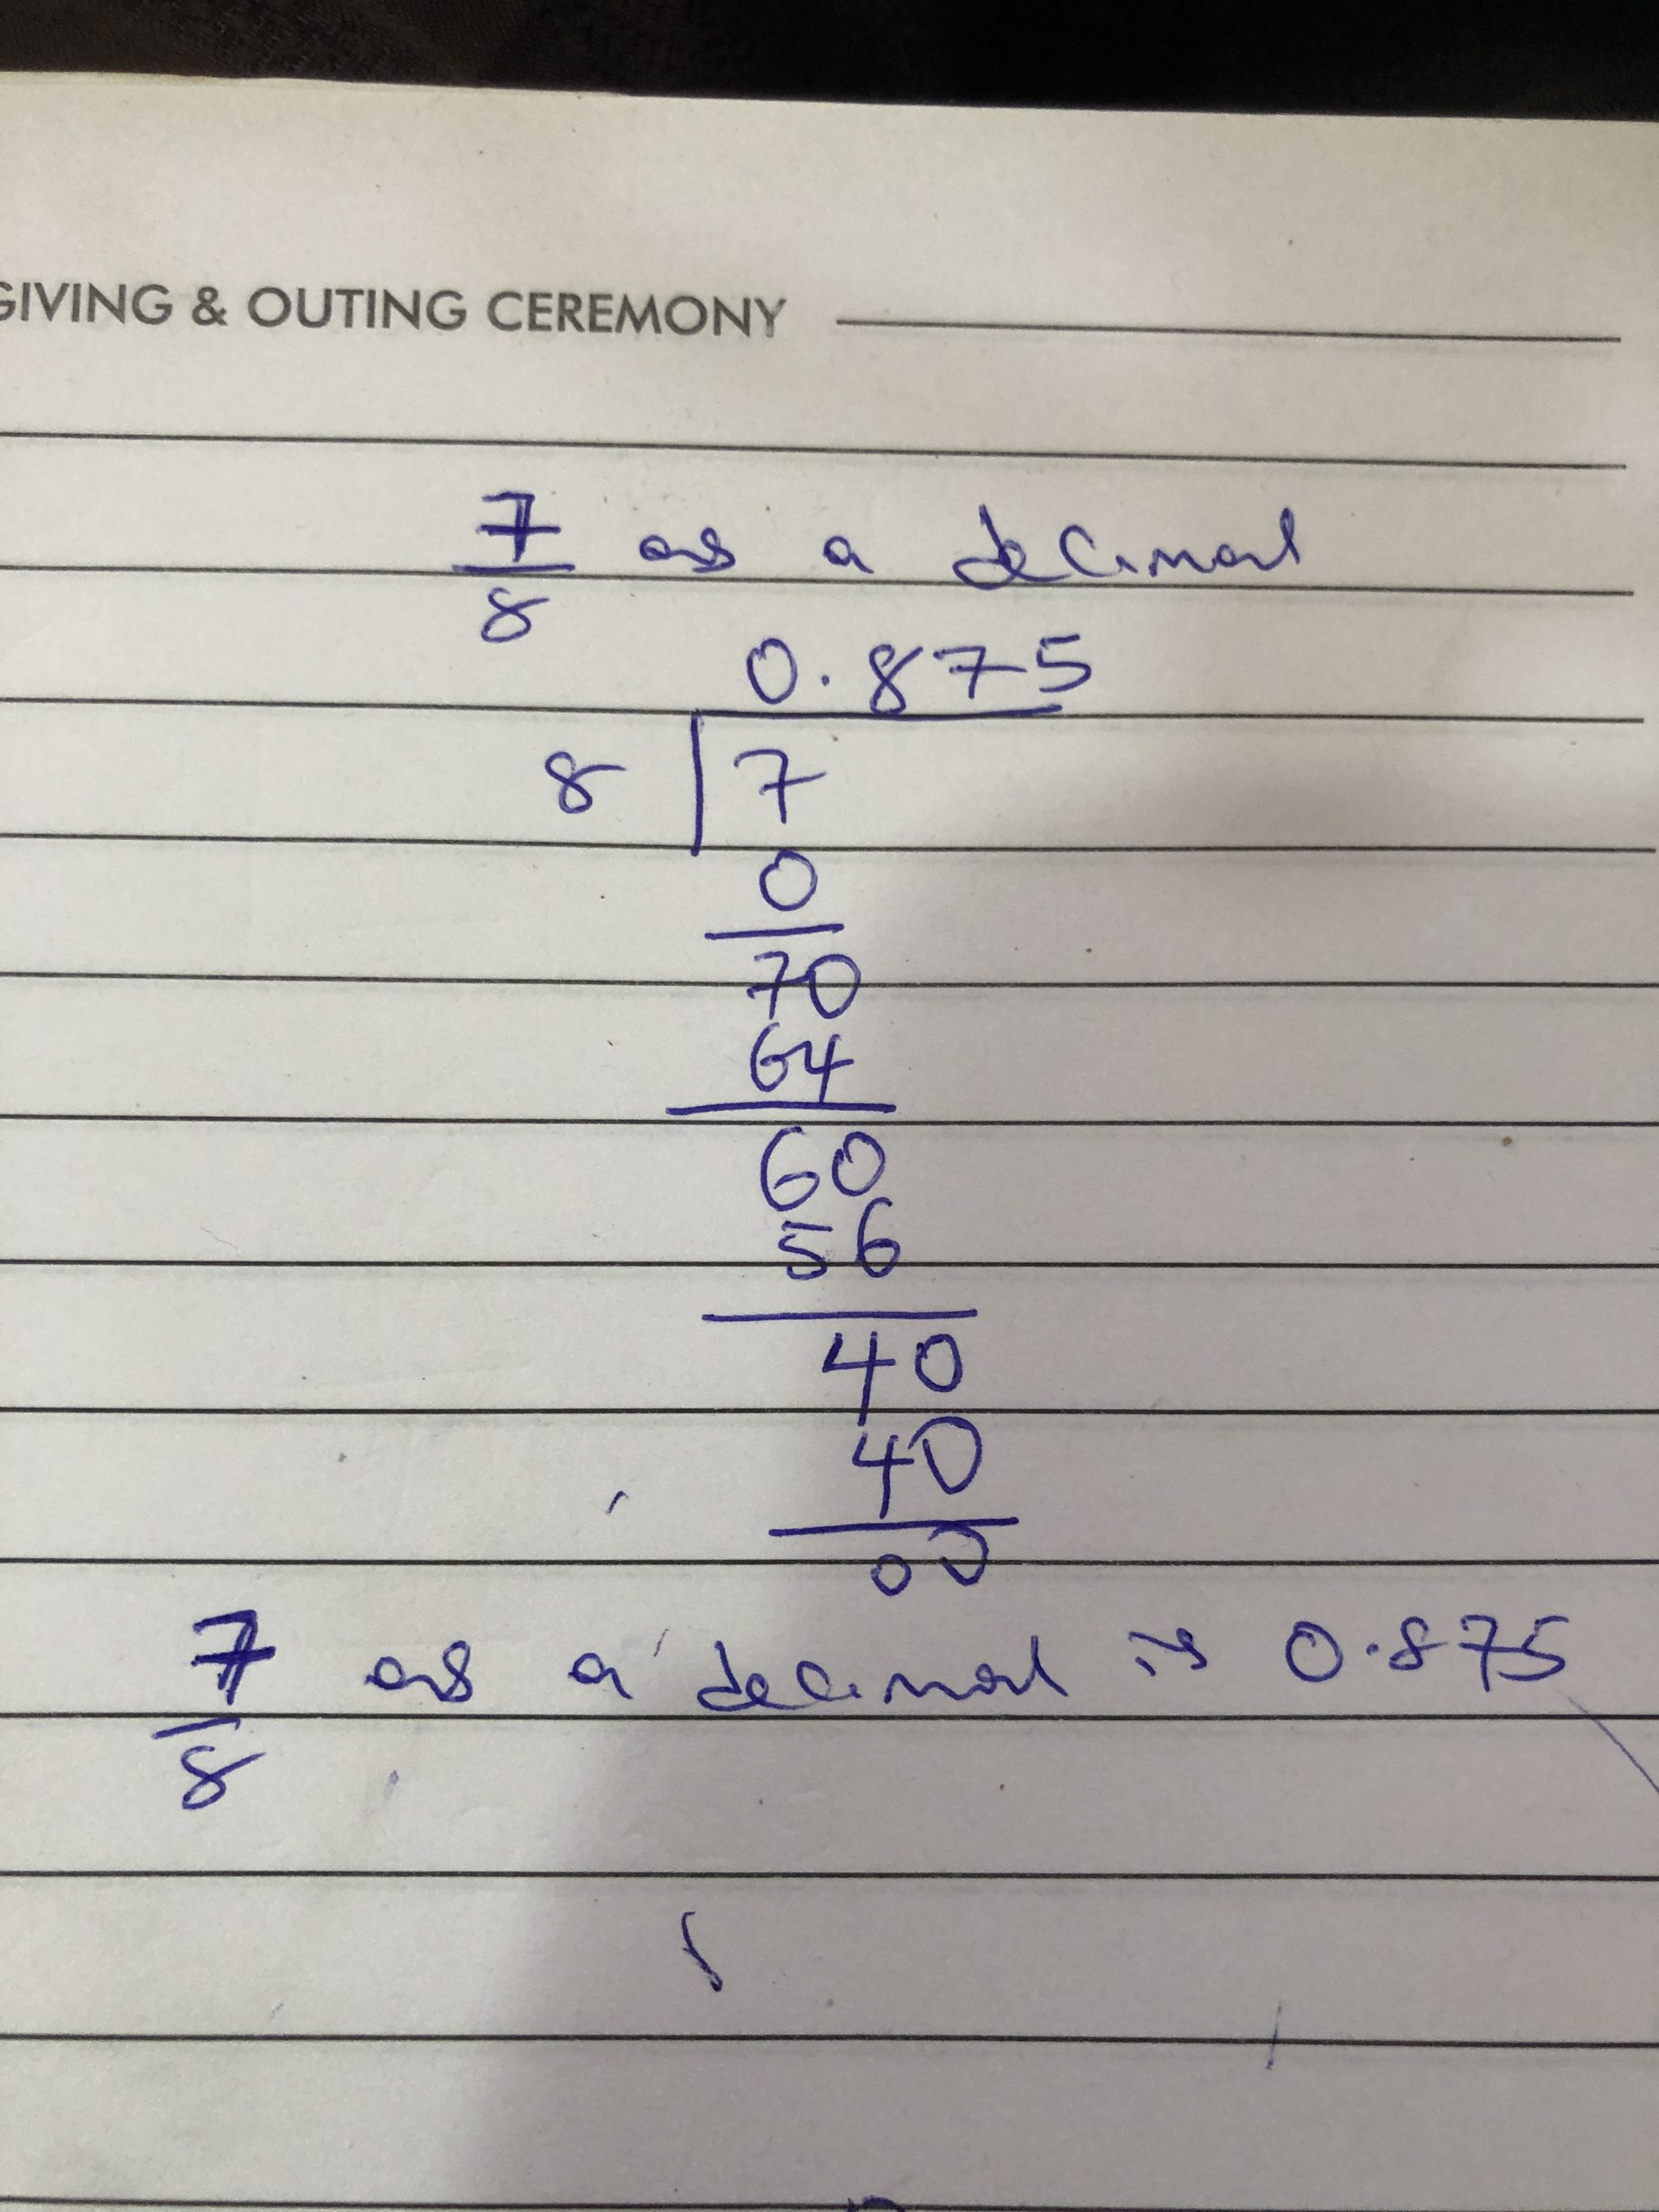 GIVING & OUTING CEREMONY
7/8 as a decimal
0.875
8 7
0
70
64
60
56
40
40
00
7/8 as a decimal is 0.875